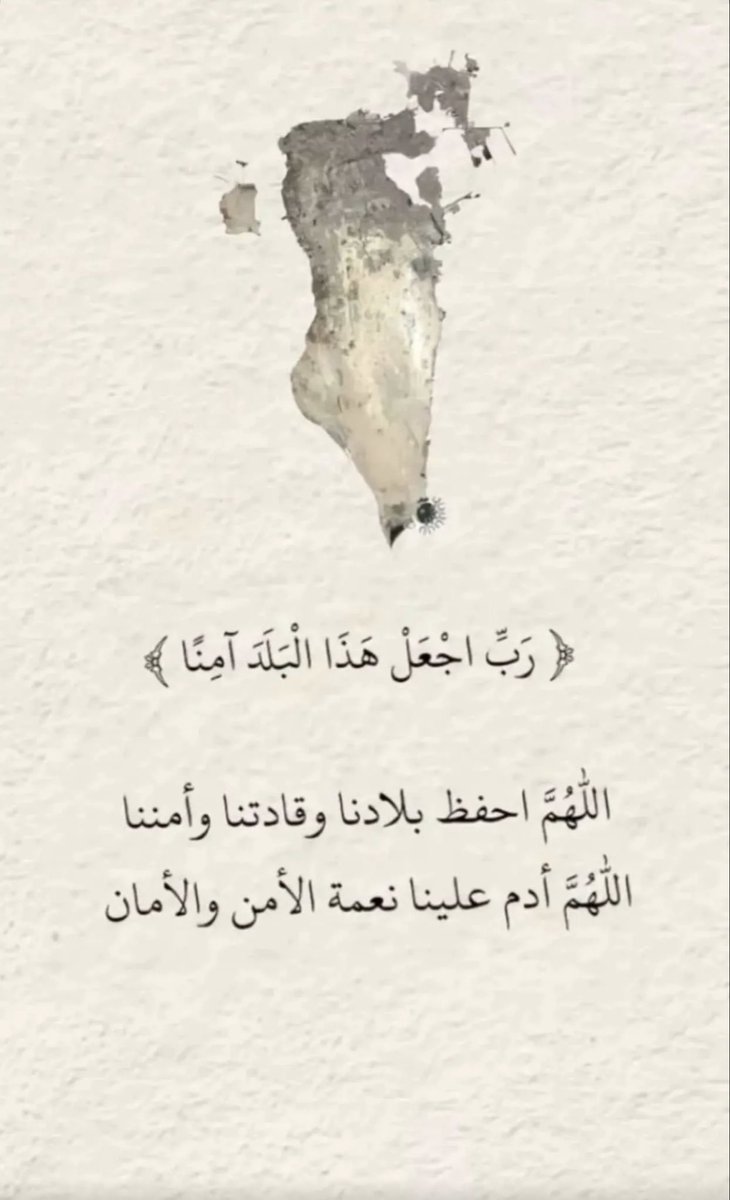 ﴿ رَبِّ اجْعَلْ هَذَا الْبَلَدَ آمِنًا ﴾
اللّٰهُمَّ احفظ بلادنا وقادتنا وأمننا
اللّٰهُمَّ أدم علينا نعمة الأمن والأمان